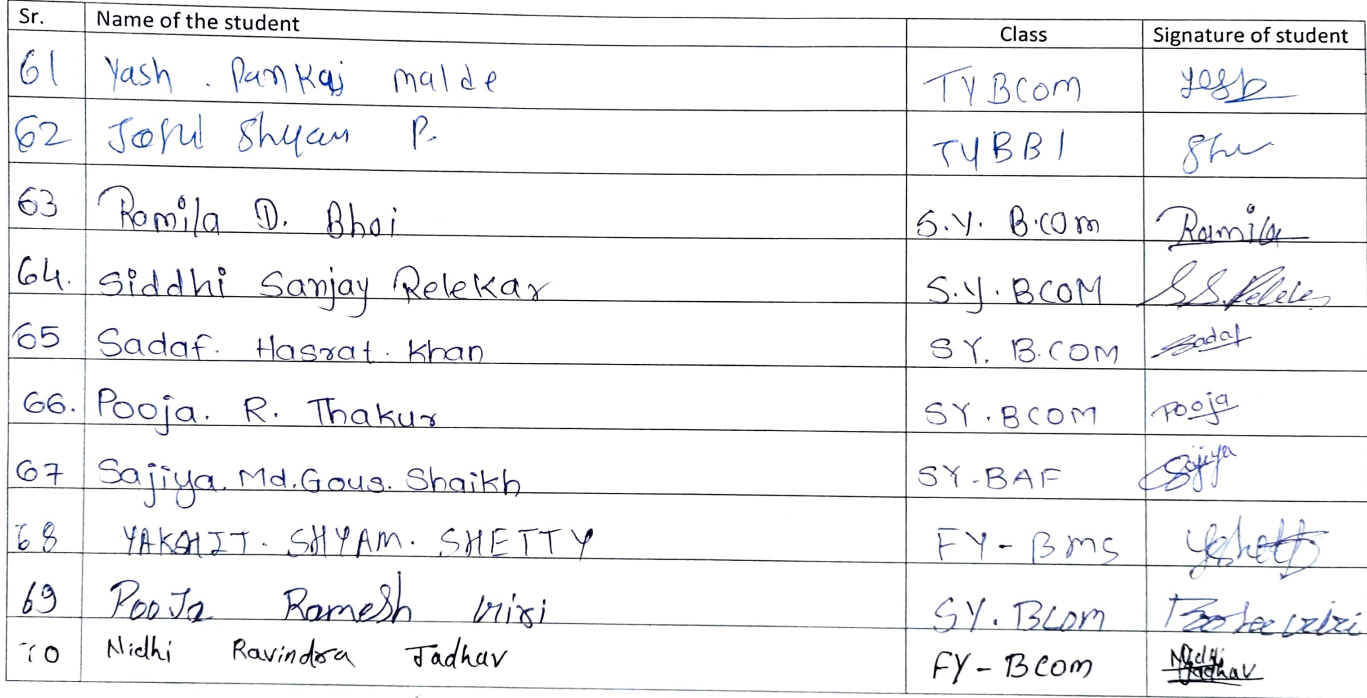 Sr. Name of the student Class Signature of student
61 Yash . Pankaj malde TYBCOM Yash
62 Shyam P. TYBBI
63 Ramila D. Bhoi S.Y. B.com Ramila
64. Siddhi Sanjay Relekar S.Y. BCOM S.S.Relekar
65 Sadaf. Hasrat. Khan SY. B.COM Sadaf
66. Pooja. R. Thakur SY.BCOM Pooja
67 Sajiya. Md.Gous. Shaikh SY-BAF Sajiya
68 YAKSHIT. SHYAM. SHETTY FY-BMS YShetty
69 PooJa Ramesh SY. BCOM
70 Nidhi Ravindra Jadhav FY-Bcom Nidhi Jadhav